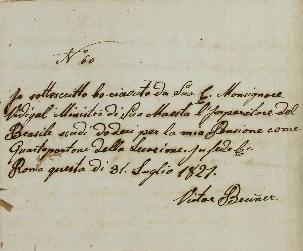 N° 60
Io sottoscritto ho ricevuto da Sua E. Monsignore
Vidigal Ministro di Sua Maestà l'Imperatore del
Brasile scudi dodeci per la mia Pensione come
Quartoportone della Funzione. In fede &c.
Roma questo di 31. Luglio 1827.
Victor